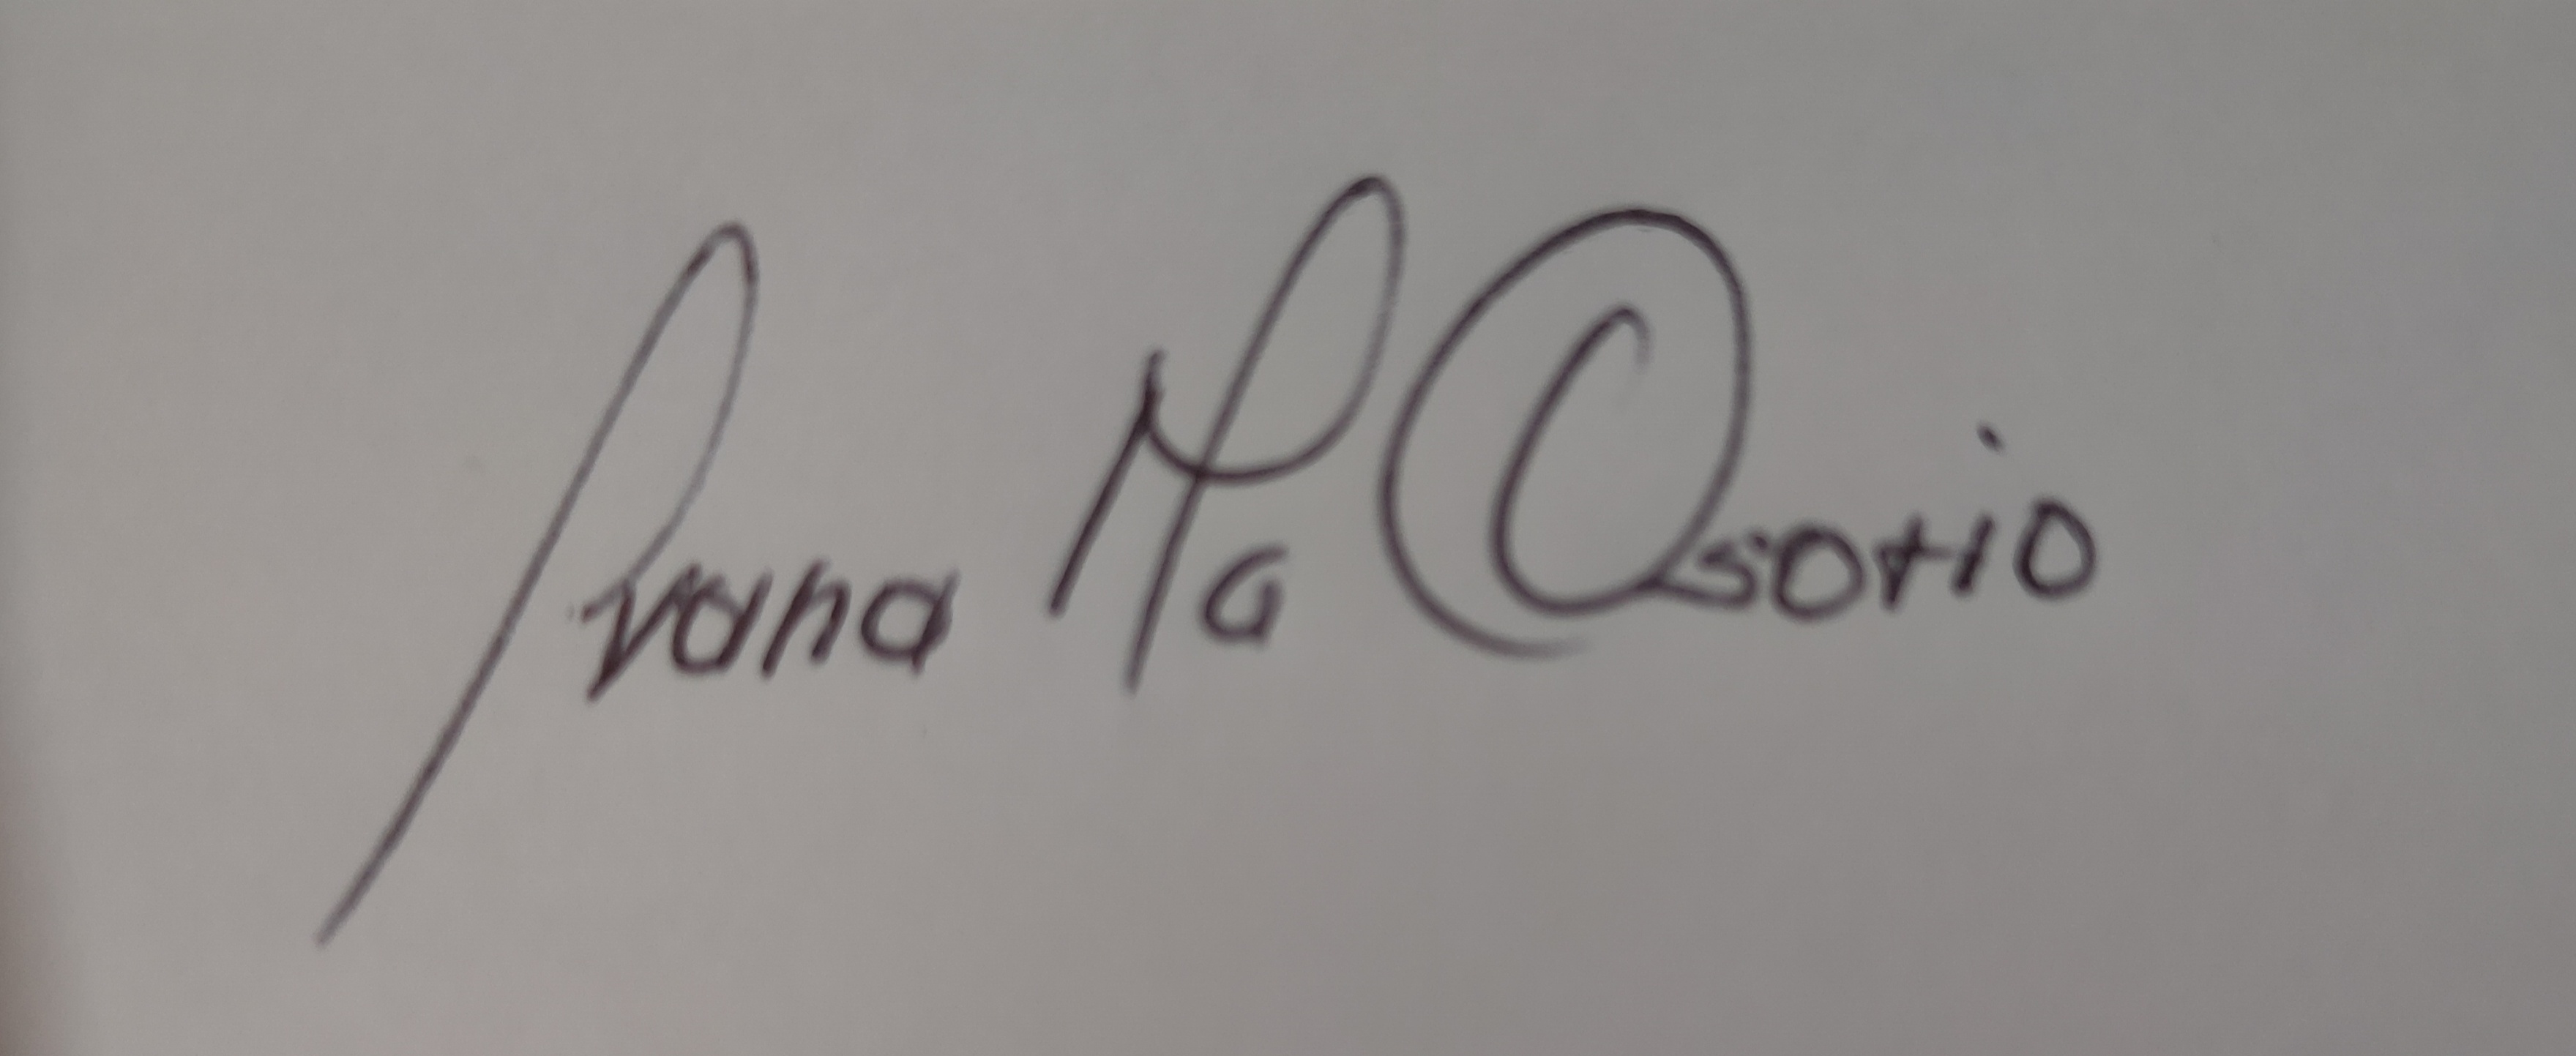 Ivana Ma Osorio